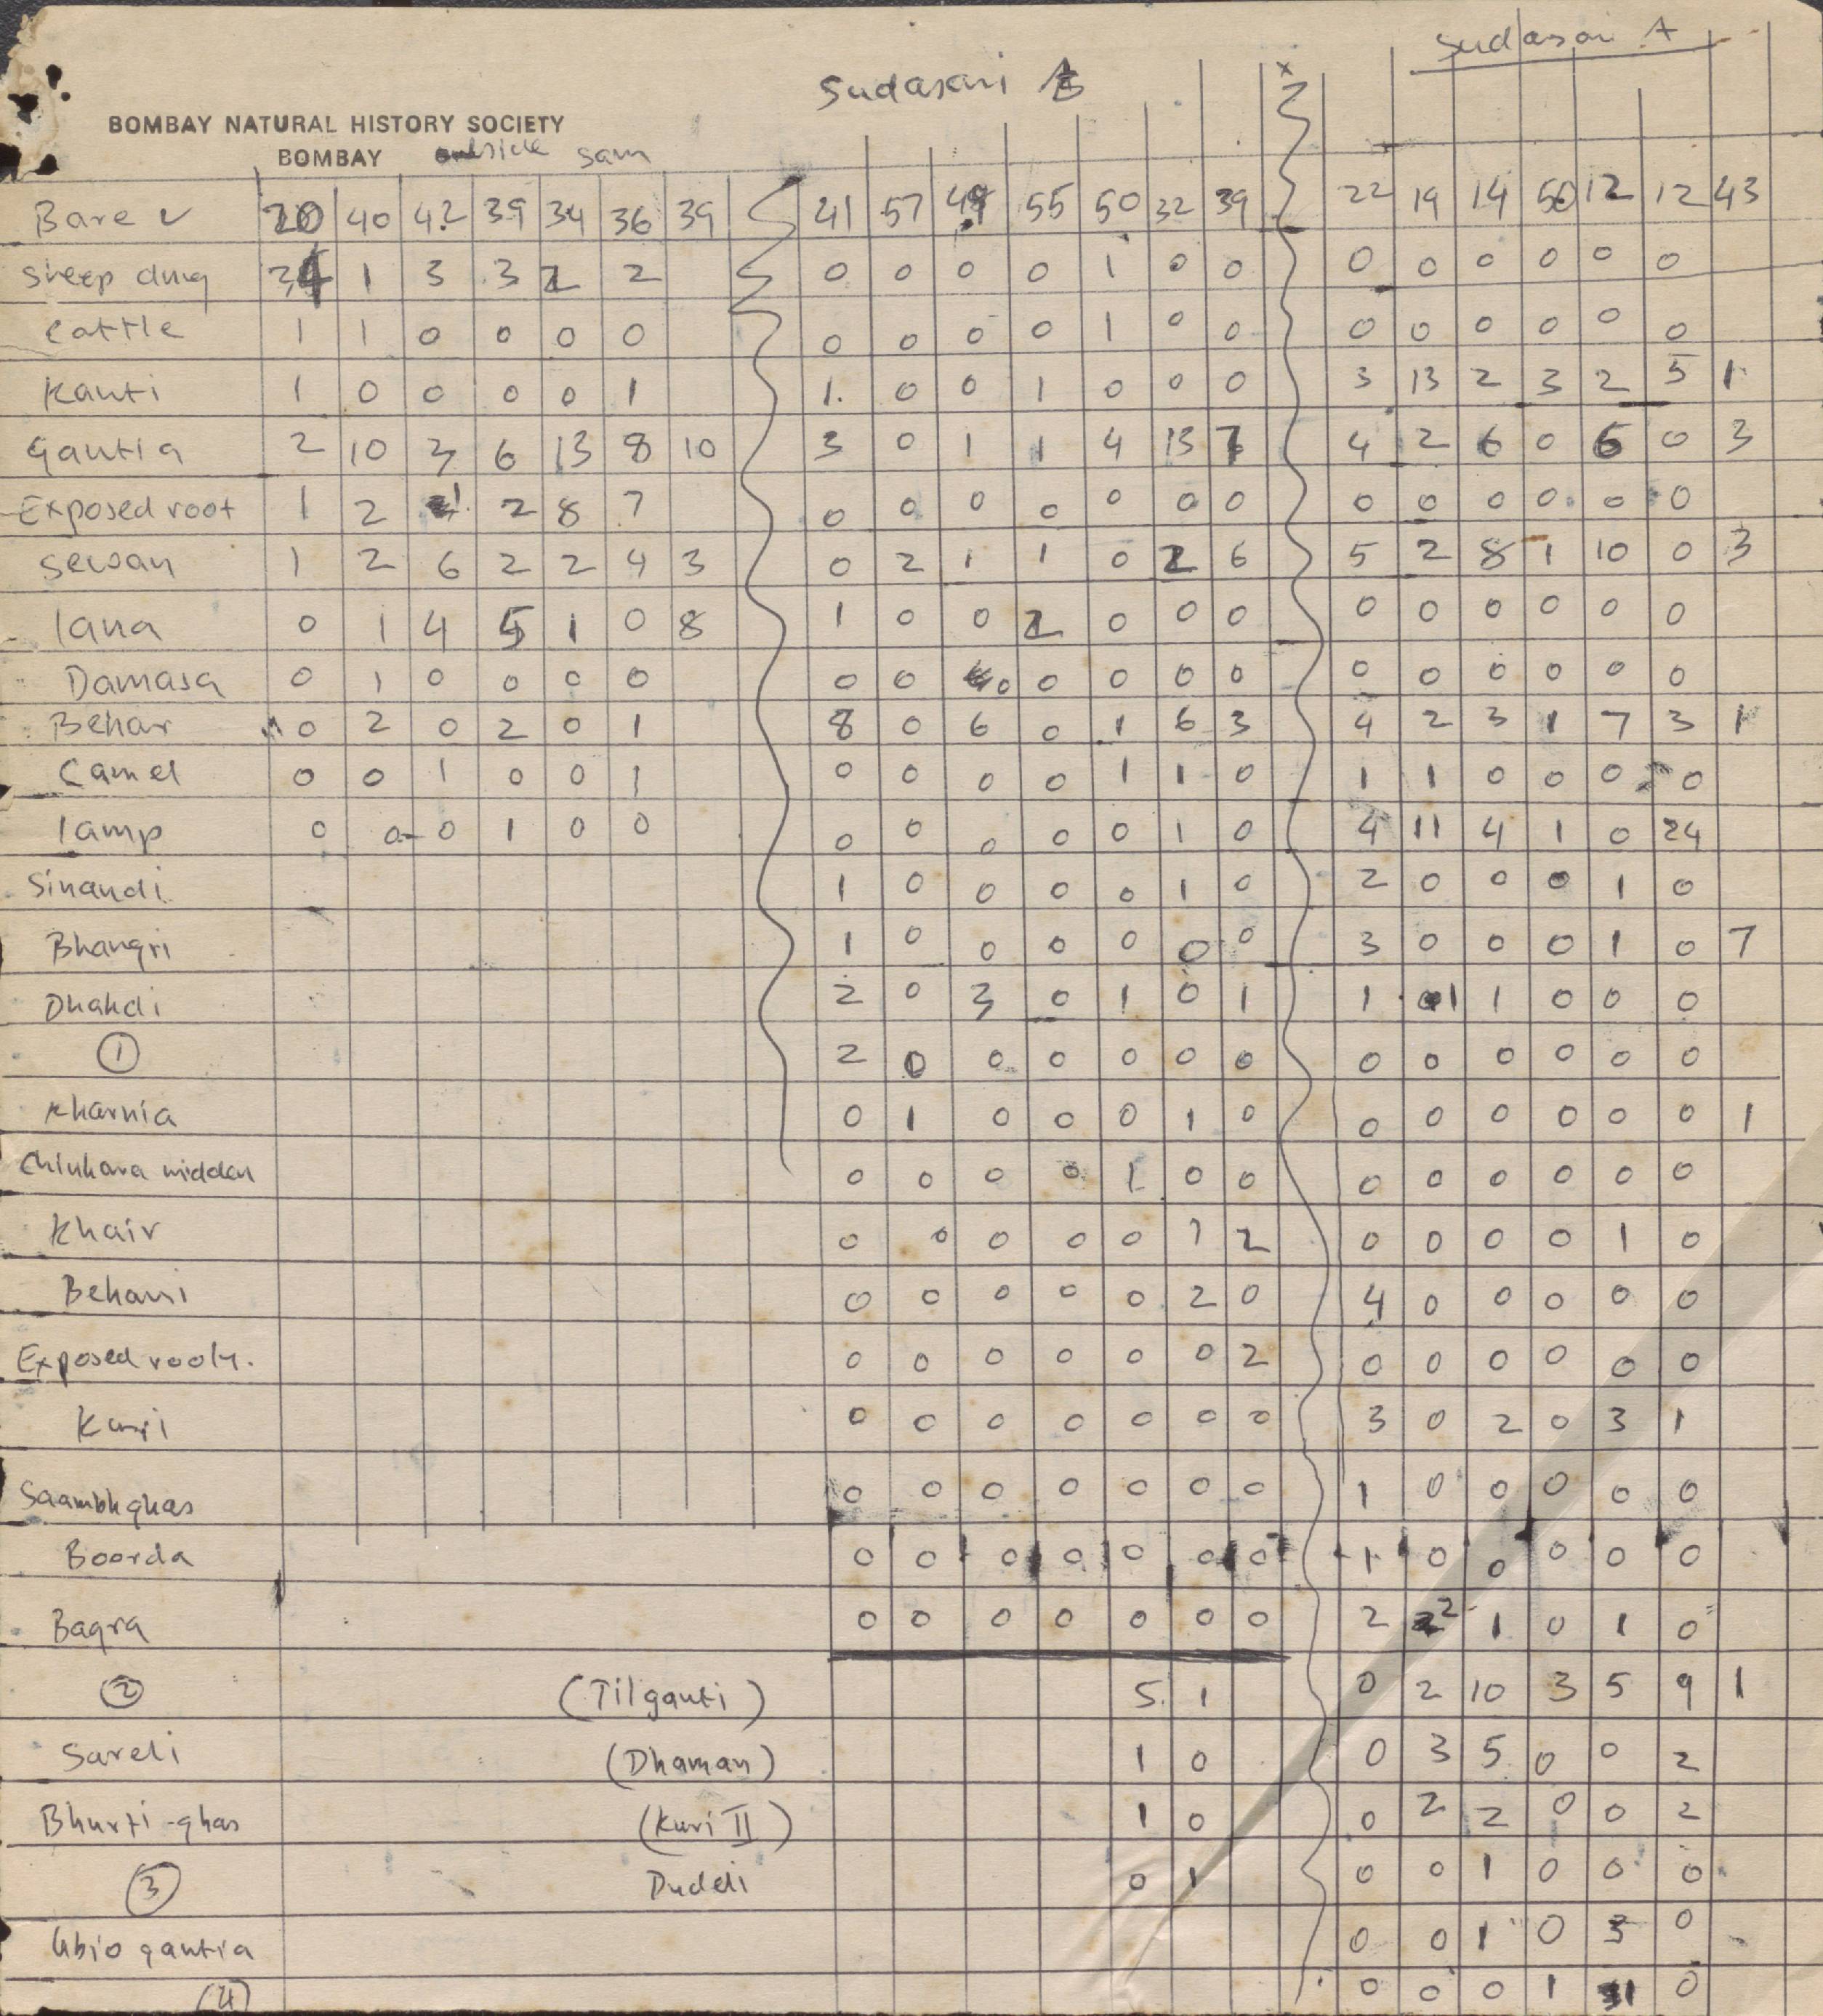 Sudasari A
Sudasari B
BOMBAY NATURAL HISTORY SOCIETY
BOMBAY outside sam
Bare ✓ 20 40 42 39 34 36 39 41 57 49 55 50 32 39 22 19 14 50 12 12 43
Sheep dung 34 1 3 3 2 2 0 0 0 0 1 0 0 0 0 0 0 0 0
Cattle 1 1 0 0 0 0 0 0 0 0 1 0 0 0 0 0 0 0 0
Kanti 1 0 0 0 0 1 1. 0 0 1 0 0 0 3 13 2 3 2 5 1
Gantia 2 10 3 6 13 8 10 3 0 1 1 4 13 7 4 2 6 0 6 0 3
Exposed root 1 2 1 2 8 7 0 0 0 0 0 0 0 0 0 0 0 0 0
Sewan 1 2 6 2 2 4 3 0 2 1 1 0 2 6 5 2 8 1 10 0 3
lana 0 1 4 5 1 0 8 1 0 0 2 0 0 0 0 0 0 0 0 0
Damasa 0 1 0 0 0 0 0 0 0 0 0 0 0 0 0 0 0 0 0
Behar 0 2 0 2 0 1 8 0 6 0 1 6 3 4 2 3 1 7 3 1
Camel 0 0 1 0 0 1 0 0 0 0 1 1 0 1 1 0 0 0 0
lamp 0 0 0 1 0 0 0 0 0 0 0 1 0 4 11 4 1 0 24
Sinandi 1 0 0 0 0 1 0 2 0 0 0 1 0
Bhangri 1 0 0 0 0 0 0 3 0 0 0 1 0 7
Dhahdi 2 0 3 0 1 0 1 1 1 1 0 0 0
① 2 0 0 0 0 0 0 0 0 0 0 0 0
Kharnia 0 1 0 0 0 1 0 0 0 0 0 0 0 1
Chinkara midden 0 0 0 0 1 0 0 0 0 0 0 0 0
Khair 0 0 0 0 0 1 2 0 0 0 0 1 0
Behami 0 0 0 0 0 2 0 4 0 0 0 0 0
Exposed rooty. 0 0 0 0 0 0 2 0 0 0 0 0 0
Kuri 0 0 0 0 0 0 0 3 0 2 0 3 1
Saambhghas 0 0 0 0 0 0 0 1 0 0 0 0 0
Boorda 0 0 0 0 0 0 0 1 0 0 0 0 0
Bagra 0 0 0 0 0 0 0 2 2 1 0 1 0
② (Tilganti) 5 1 0 2 10 3 5 9 1
Sareli (Dhaman) 1 0 0 3 5 0 0 2
Bhurti-ghas (Kuri II) 1 0 0 2 2 0 0 2
③ Duddi 0 1 0 0 1 0 0 0
Ubio gantia 0 0 1 0 3 0
(4) 0 0 0 1 1 0